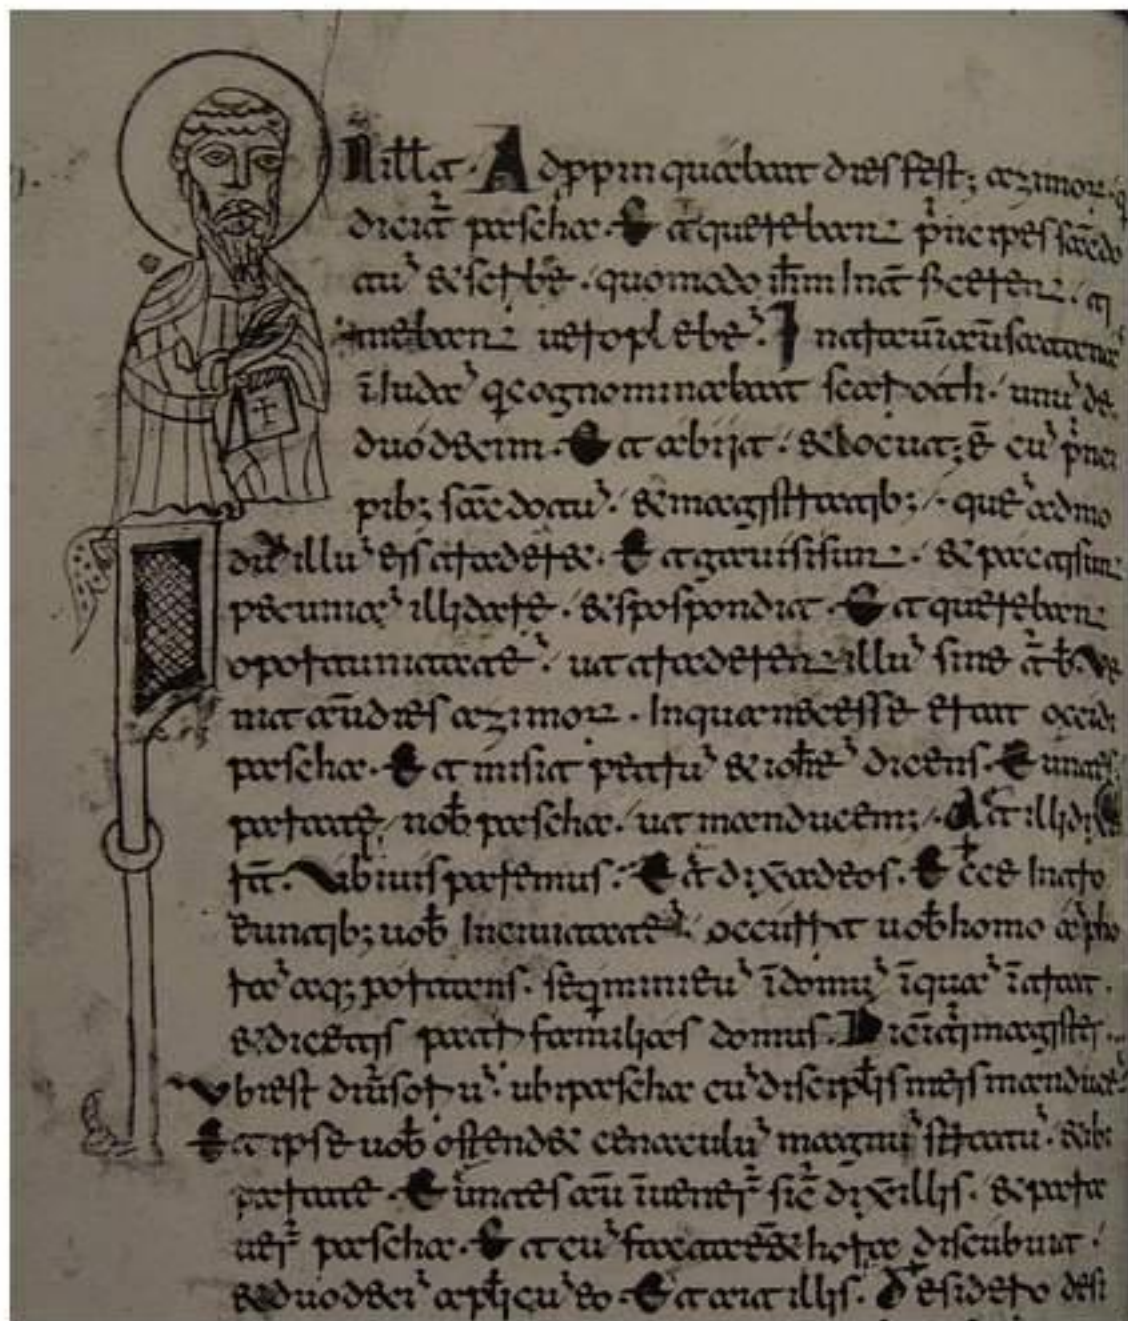 Adppinquabat dies fest; azimor. q
dicit̄ pascha. Et querebant p̄ncipes sacdo
tu̅ & scrbe. quomodo ih̄m Inā ficeren. ti
mebant uero plebe̅. Inatrauit au̅ satanas
i̅ Iuda̅ q cognominabatur scarioth. unu̅ de
duodecim. Et abiit. & locut; ē cu̅ p̄nci
pib; sacdotu̅. & magistratib;. que̅ admo
du̅ illu̅ eis traderet. Et gauisi sunt. & pacti sunt
pecunia̅ illi dare. & spospondit. Et querebant
oportunitate̅. ut traderent illu̅ sine t̄b. Ve
nit au̅ dies azimor. In qua necesse erat occidi
pascha. Et misit petru̅ & ioh̄e̅ dicens. Euntes
parate nob̄ pascha. ut manducem;. At illi dix
rt̄. Vbi uis paremus. Et dix̄ ad eos. Ecce Intro
euntib; uob̄ In ciuitate̅. occurret uob̄ homo a̅pho
ra̅ aq; portans. seqmini eu̅ i̅ domu̅ i̅ qua̅ i̅trat.
& dicetis patri familias domus. Dicit t̄ magister.
Vbi est diuersoriu̅. ubi pascha cu̅ discip̄lis meis manduce̅.
Et ipse uob̄ ostendet cenaculu̅ magnu̅ stratu̅. & ibi
parate. Euntes au̅ i̅uener̄ sic̄ dix̄ illis. & para
uer̄ pascha. Et cu̅ facta eēt hora discubuit.
& duodeci̅ ap̄li cu̅ eo. Et ait illis. Desidero desi